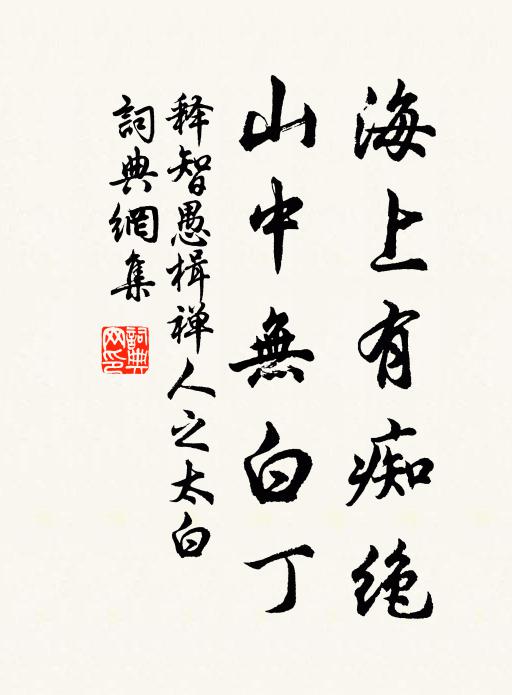 海上有痴绝
山中無白丁
释智愚楫禅人之太白
詞典網集
詞典網印